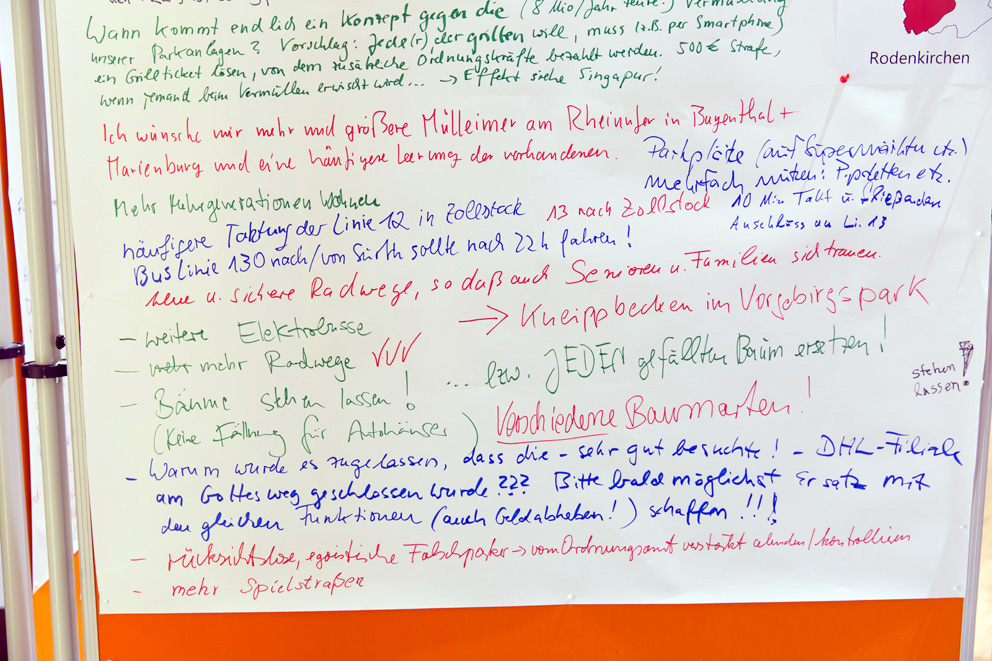 Wann kommt endlich ein Konzept gegen die (8 Mio/Jahr teure!) Vermüllung
unserer Parkanlagen? Vorschlag: Jede(r) der grillen will, muss (z.B. per Smartphone)
ein Grillticket lösen, von dem zusätzliche Ordnungskräfte bezahlt werden. 500 € Strafe,
wenn jemand beim Vermüllen erwischt wird... → Effekt siehe Singapur!
Rodenkirchen
Ich wünsche mir mehr und größere Mülleimer am Rheinufer in Bayenthal +
Marienburg und eine häufigere Leerung der vorhandenen.
Parkplätze (auf Supermärkten etc.)
mehrfach nutzen: etc.
Mehr Mehrgenerationen Wohnen
häufigere Taktung der Linie 12 in Zollstock
13 nach Zollstock
10 Min Takt u.
Anschluss an Li. 13
Bus Linie 130 nach/von Sürth sollte nach 22h fahren!
neue u. sichere Radwege, so daß auch Senioren u. Familien sich trauen.
→ Kneippbecken im Vorgebirgspark
- weitere Elektrobusse
- mehr mehr Radwege √√√
- Bäume stehen lassen!
... bzw. JEDEN gefällten Baum ersetzen!
stehen
lassen!
(Keine Fällung für Autohäuser)
Verschiedene Baumarten!
- Warum wurde es zugelassen, dass die - sehr gut besuchte! - DHL-Filiale
am Gottesweg geschlossen wurde??? Bitte bald möglichst Ersatz mit
den gleichen Funktionen (auch Geldabheben!) schaffen!!!!
- rücksichtslose, egoistische Falschparker → vom Ordnungsamt verstärkt ahnden/kontrollieren
- mehr Spielstraßen